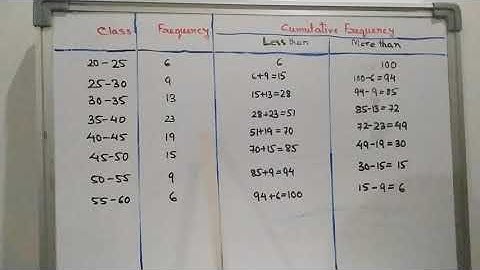 Class Frequency Cumulative Frequency
Less than More than
20-25 6 6 100
25-30 9 6+9=15 100-6=94
30-35 13 15+13=28 94-9=85
35-40 23 28+23=51 85-13=72
40-45 19 51+19=70 72-23=49
45-50 15 70+15=85 49-19=30
50-55 9 85+9=94 30-15=15
55-60 6 94+6=100 15-9=6